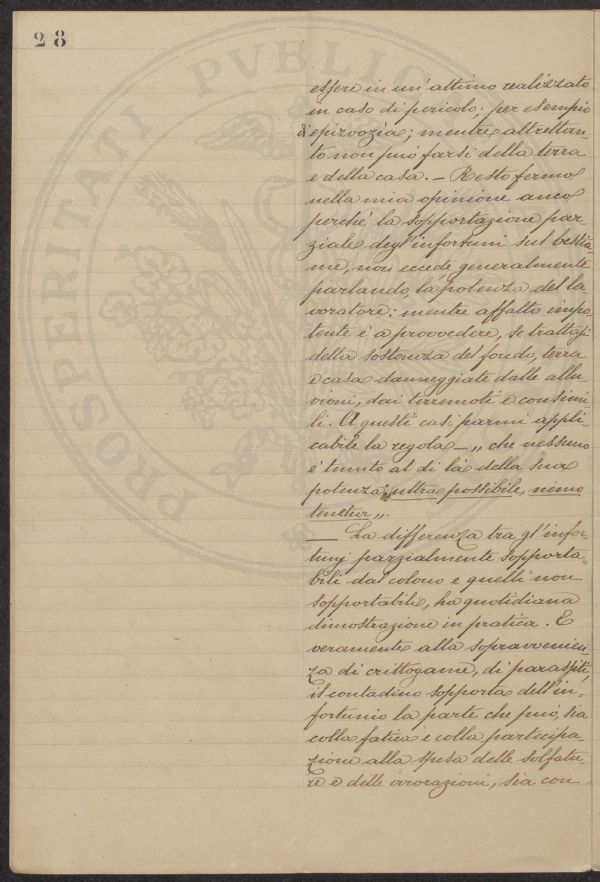 28
PROSPERITATI PVBLIC
essere in un'attimo realizzato
in caso di pericolo; per esempio
d'epizoozia; mentre altrettan
to non può farsi della terra
e della casa. — Resto fermo
nella mia opinione anco
perché la sopportazione par
ziale degl'infortuni sul bestia-
me, non eccede, generalmente
parlando, la potenza del la
voratore: mentre affatto impo
tente è a provvedere, se trattasi
della sostanza del fondo, terra
e casa danneggiate dalle allu
vioni, dai terremoti e consimi
li. A questi casi parmi appli-
cabile la regola — „ che nessuno
è tenuto al di là della sua
potenza: ultra possibile, nemo
tenetur „.
— La differenza tra gl'infor-
tunj parzialmente sopporta-
bili dal colono e quelli non
sopportabili, ha quotidiana
dimostrazione in pratica. E
veramente alla sopravvenien-
za di crittogame, di parassiti,
il contadino sopporta dell'in-
fortunio la parte che può, sia
colla fatica e colla partecipa
zione alla spesa delle solfatu
re e delle irrorazioni, sia con